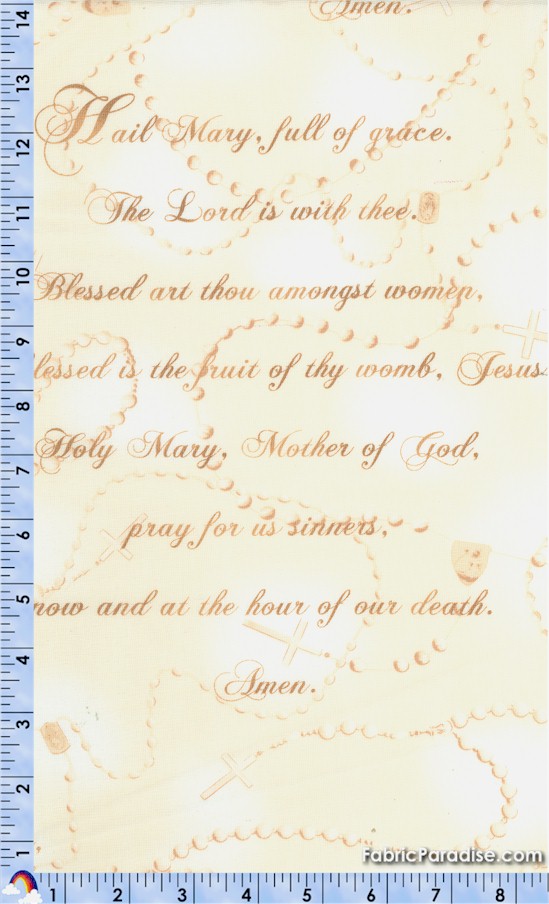 Amen.
Hail Mary, full of grace.
The Lord is with thee.
Blessed art thou amongst women,
lessed is the fruit of thy womb, Jesus.
Holy Mary, Mother of God,
pray for us sinners,
now and at the hour of our death.
Amen.
FabricParadise.com
14
13
12
11
10
9
8
7
6
5
4
3
2
1
1 2 3 4 5 6 7 8